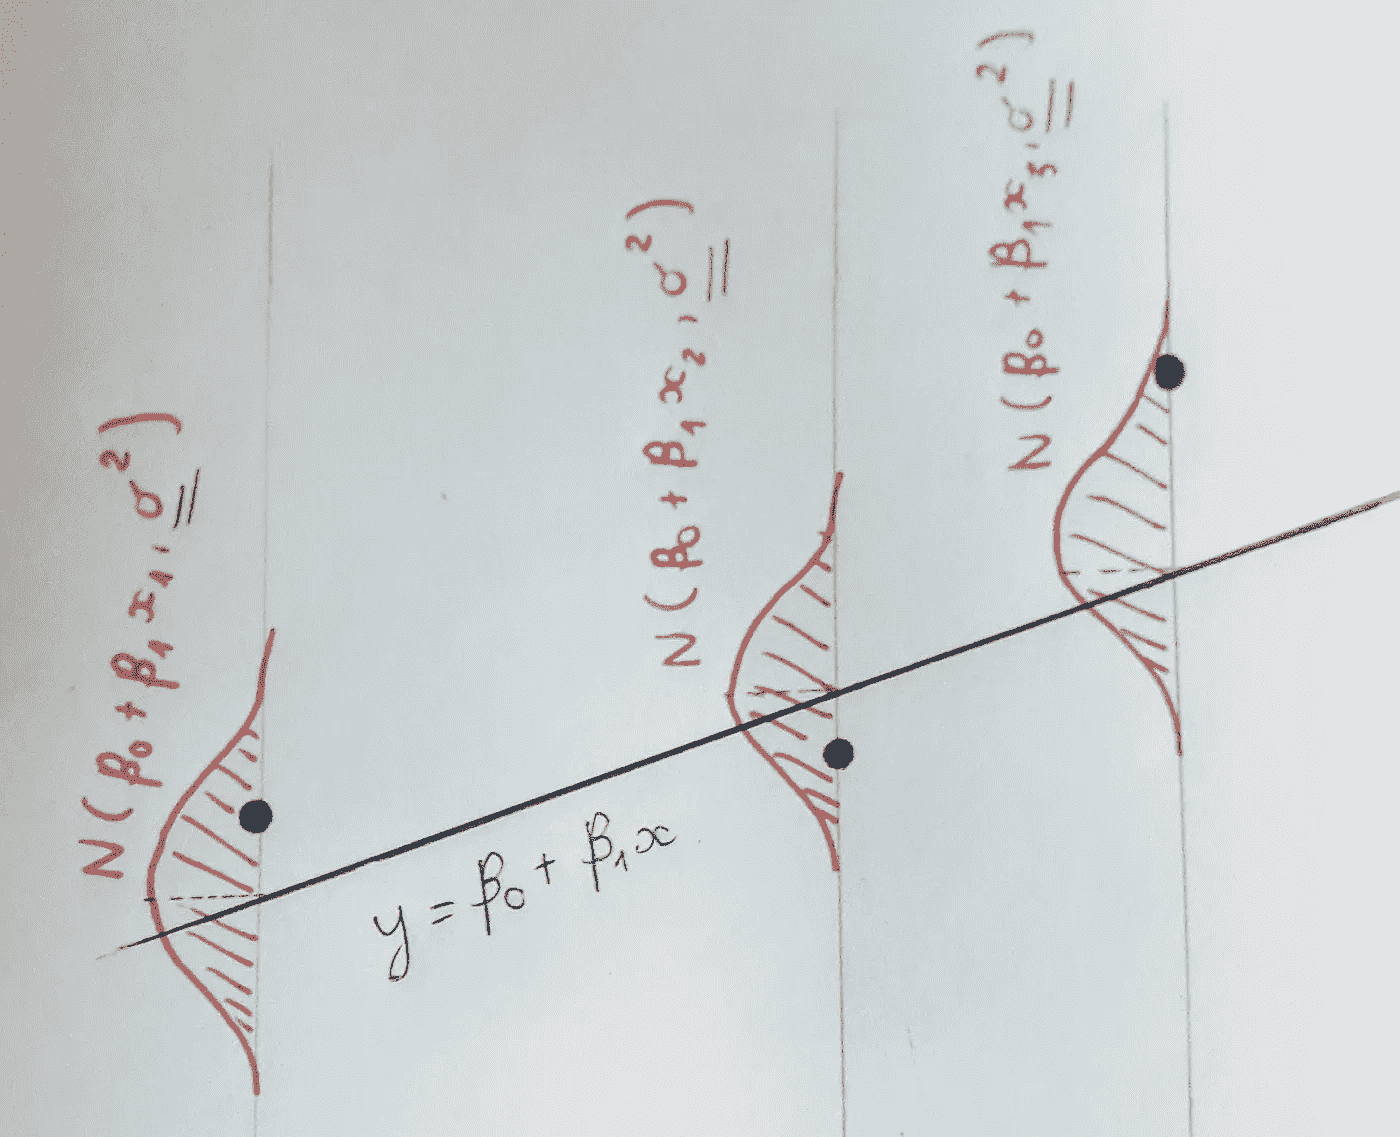 N(β₀ + β₁x₁, σ²)
N(β₀ + β₁x₂, σ²)
N(β₀ + β₁x₃, σ²)
y = β₀ + β₁x